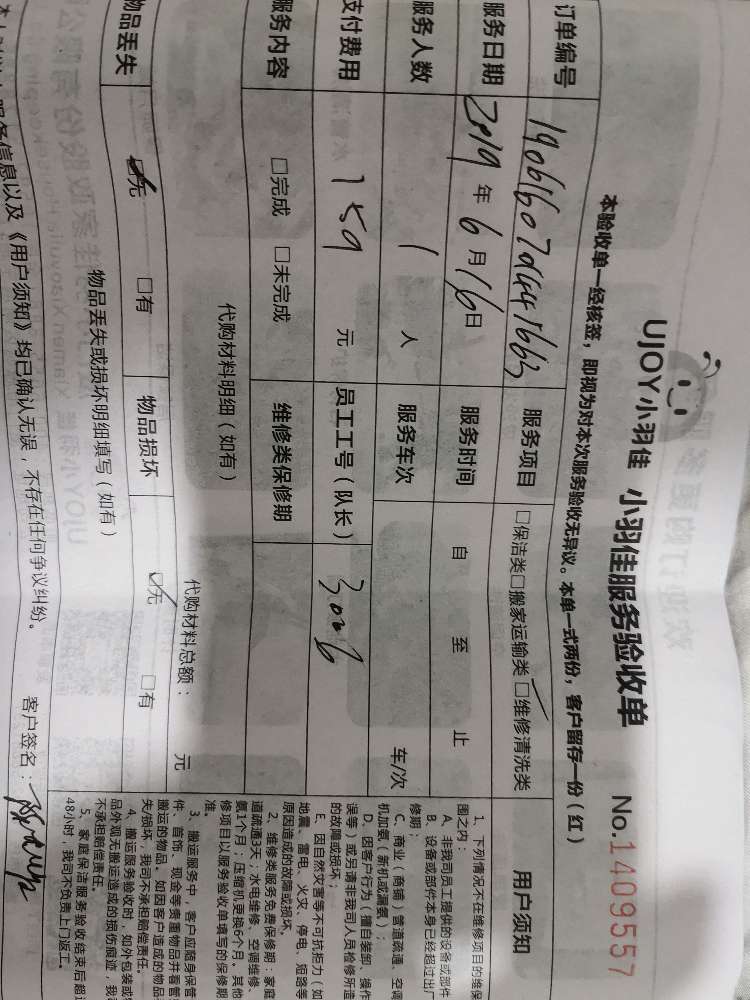 UJOY小羽佳 小羽佳服务验收单 No.1409557
本验收单一经核签，即视为对本次服务验收无异议。本单一式两份，客户留存一份（红）
订单编号 服务项目 □保洁类□搬家运输类 □维修清洗类 用户须知
服务日期 2019年6月16日 服务时间 自 至 止
服务人数 1人 服务车次 车/次
支付费用 159元 员工工号（队长） 3006
服务内容 □完成 □未完成 维修类保修期
代购材料明细（如有）
代购材料总额： 元
物品丢失 ☑无 □有 物品损坏 ☑无 □有
物品丢失或损坏明细填写（如有）
服务信息以及《用户须知》均已确认无误，不存在任何争议纠纷。 客户签名：
1、下列情况不在维修项目的维保
围之内：
A、非我司员工提供的设备或部件
B、设备或部件本身已经超过出厂
修期；
C、商业（商铺）管道疏通、空调
机加氨（新机或漏氨）；
D、因客户行为（擅自装卸、操作
误等）或另请非我司人员检修所造
的故障或损坏；
E、因自然灾害等不可抗拒力（如
地震、雷电、火灾、停电、短路等
原因造成的故障或损坏。
2、维修类服务免费保修期：家庭
道疏通3天；水电维修、空调维修、
氨1个月；压缩机更换6个月。其他
修项目以服务验收单填写的保修期
准。
3、搬运服务中，客户应随身保管
件、首饰、现金等贵重物品并看管
搬运的物品。如因客户造成的物品
失/损坏，我司不承担赔偿责任。
4、搬运服务验收时，如外包装或
品外观无搬运造成的损伤痕迹，我
不承担赔偿责任。
5、家庭保洁服务验收结束后超过
48小时，我司不负责上门返工。